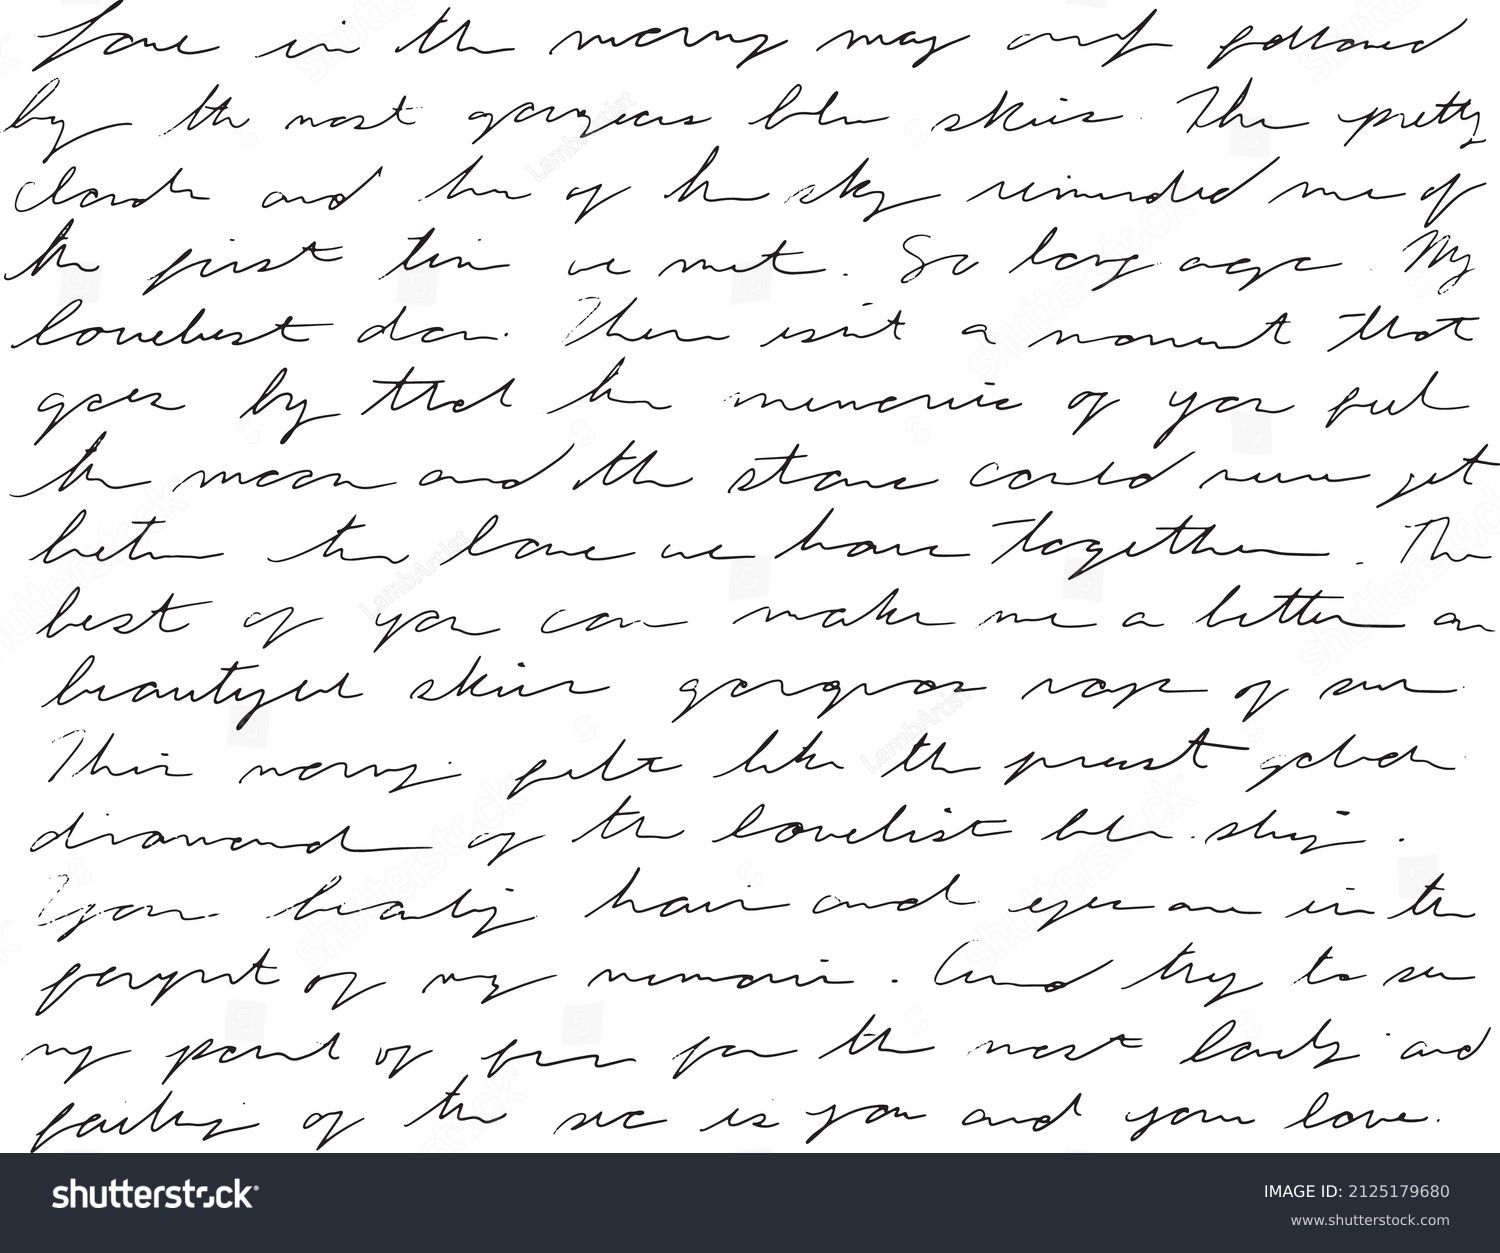 Love in the morning may and followed
by the most gorgeous blue skies. The pretty
clouds and hue of the sky reminded me of
the first time we met. So long ago. My
loveliest dear. There isn't a moment that
goes by that the memories of you feel
the moon and the stars could never get
between the love we have together. The
best of you can make me a better an
beautiful skies gorgeous rays of sun
This morning felt like the purest golden
diamond of the loveliest blue sky.
Your beauty hair and eyes are in the
forefront of my memories. And try to see
my point of for the most lovely and
feeling of the is you and your love.
shutterstock
IMAGE ID: 2125179680
www.shutterstock.com